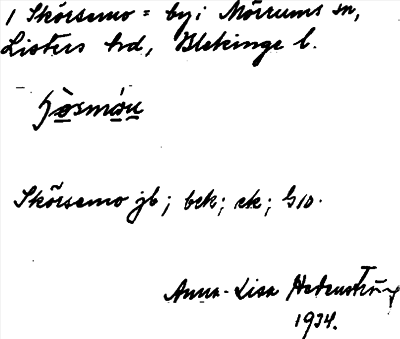 1 Skörsemo = by i Mörrums sn,
Listers hrd, Blekinge l.
Skörsemo jb; bek; ek; G10.
Anna-Lisa Hedenström
1934.